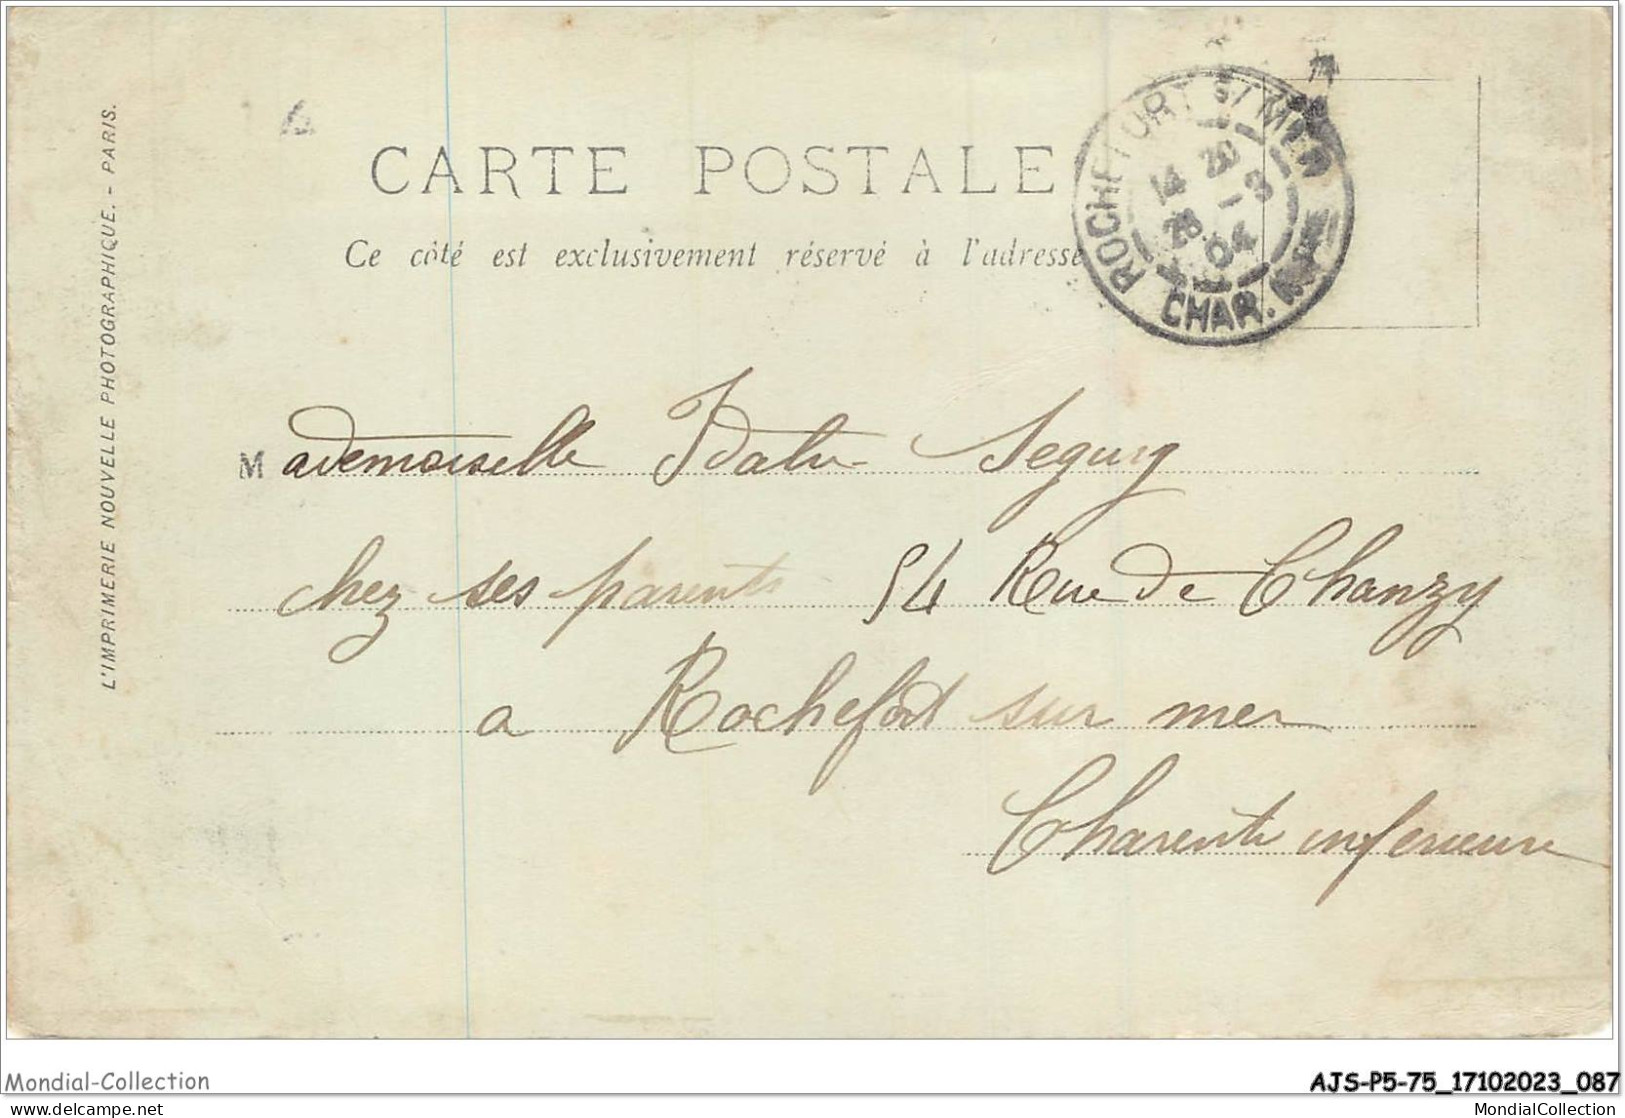 CARTE POSTALE
Ce côté est exclusivement réservé à l'adresse
ROCHEFORT S/ MER
14 20
28 -3
04
CHAR. INFRE
L'IMPRIMERIE NOUVELLE PHOTOGRAPHIQUE. - PARIS.
Mademoiselle Seguy
chez ses parents 54 Rue de Chanzy
a Rochefort sur mer
Charente inferieure
Mondial-Collection
AJS-P5-75_17102023_087
delcampe.net
MondialCollection